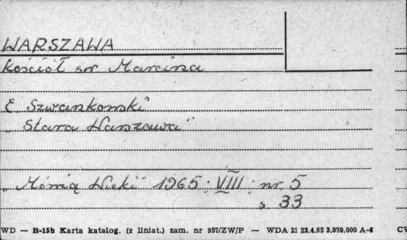 WARSZAWA
Kościół św Marcina
E Szwankowski
"Stara Warszawa"
"Mówią Wieki" 1965 VIII nr. 5
s 33
WD — B-15b Karta katalog. (z liniat.) zam. nr 957/ZW/P — WDA 21 22.4.65 3.070.000 A-6